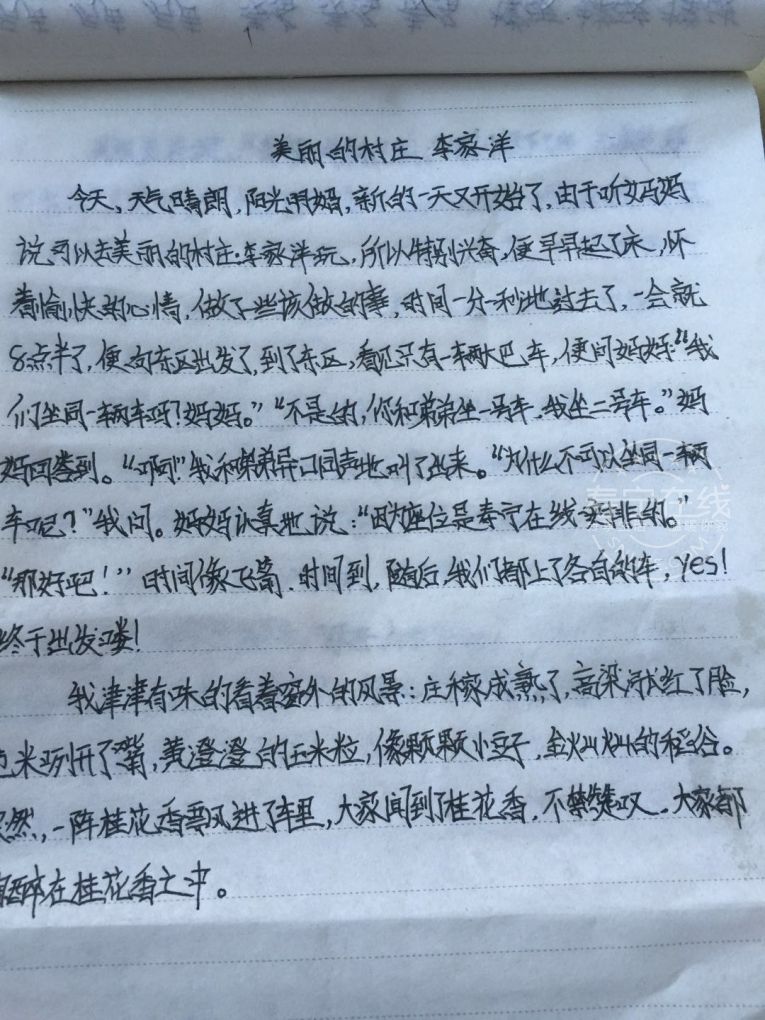 美丽的村庄 李家洋
今天，天气晴朗，阳光明媚，新的一天又开始了，由于听妈妈
说可以去美丽的村庄·李家洋玩，所以特别兴奋，便早早起了床，怀
着愉快的心情，做了些该做的事，时间一分一秒地过去了，一会就
8点半了，便向东区出发了，到了东区，看见只有一辆大巴车，便问妈妈："我
们坐同一辆车吗？妈妈。""不是的，你和弟弟坐一号车，我坐二号车。"妈
妈回答到。"啊！"我和弟弟异口同声地叫了出来。"为什么不可以坐同一辆
车呢？"我问。妈妈认真地说："因为座位是寿宁在线安排的。"
"那好吧！"时间像飞箭，时间到，随后，我们都上了各自的车，yes！
终于出发喽！
我津津有味的看着窗外的风景：庄稼成熟了，高粱涨红了脸，
玉米咧开了嘴，黄澄澄的玉米粒，像颗颗小豆子，金灿灿的稻谷。
忽然，一阵桂花香飘进了车里，大家闻到了桂花香，不禁赞叹。大家都
陶醉在桂花香之中。
寿宁在线